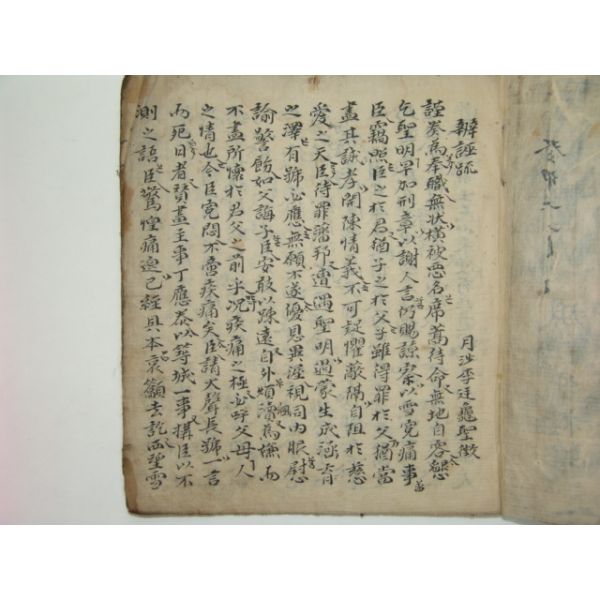 辨誣疏 月沙李廷龜聖徵
誣奏爲奉職無狀橫被惡名席藁待命無地自容懇
乞聖明早加刑章以謝人言仍賜諒察以雪寃痛事
臣竊照臣之於君猶子之於父子雖得罪於父猶當
盡其誠孝開陳情義不可疑懼蔽隔自阻於慈
愛之天臣待罪藩邦遭遇聖明過蒙生成涵育
之澤有號必應無願不遂優恩異渥視同內服慰
諭警飭如父誨子臣安敢以踈遠自外煩瀆爲嫌而
不盡所懷於君父之前乎况疾痛之極必呼父母人
之情也今臣寃悶不啻疾痛矣臣請大聲長號一言
而死日者贊畫主事丁應泰以等城一事搆臣以不
測之語臣驚惶痛迫已經具本哀籲去訖而聖雪